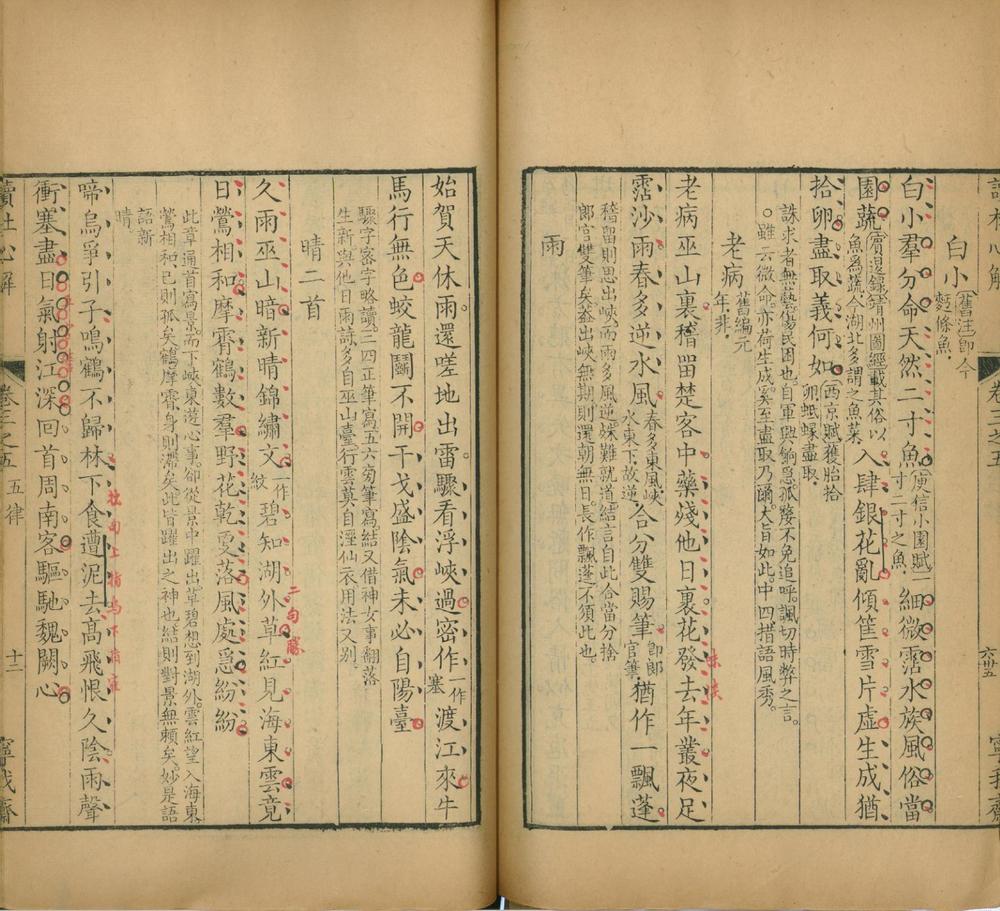 讀杜心解
卷三之五
六廿五
寧我齋
白小
舊注即今
麪條魚
白小羣分命天然二寸魚
庾信小園賦一
寸二寸之魚
細微霑水族風俗當
園蔬
賓退錄靖州圖經載其俗以
魚爲蔬今湖北多謂之魚菜
入肆銀花亂傾筐雪片虛生成猶
拾卵盡取義何如
西京賦獲胎拾
卵蚳蝝盡取
誅求者無藝傷民困也自軍興餉急孤嫠不免追呼諷切時弊之言
雖云微命亦荷生成奚至盡取乃爾大旨如此中四措語風秀
老病
舊編元
年非
老病巫山裏稽留楚客中藥殘他日裏花發去年叢夜足
霑沙雨春多逆水風
春多東風峽
水東下故逆
合分雙賜筆
即郎
官筆
猶作一飄蓬
稽留則思出峽而雨多風逆殊難就道結言自此合當分捨
郎官雙筆矣葢出峽無期則還朝無日長作飄蓬不須此也
雨
始賀天休雨還嗟地出雷驟看浮峽過密作
一作
塞
渡江來牛
馬行無色蛟龍鬭不開干戈盛陰氣未必自陽臺
驟字密字略讀二四正筆寫五六旁筆寫結又借神女事翻落
生新與他日雨詩多自巫山臺行雲莫自溼仙衣用法又别
晴二首
久雨巫山暗新晴錦繡文
一作
紋
碧知湖外草紅見海東雲竟
二句勝
日鶯相和摩霄鶴數羣野花乾更落風處急紛紛
此章通首寫景而下峽東遊心事卻從景中躍出草碧想到湖外雲紅望入海東
鶯相和己則孤矣鶴摩霄身則滯矣此皆躍出之神也結則對景無賴矣妙是語
語新
晴
啼烏爭引子鳴鶴不歸林下食遭泥去高飛恨久陰雨聲
衝塞盡日氣射江深回首周南客驅馳魏闕心
讀杜心解
卷三之五
五律
十二
寧我齋